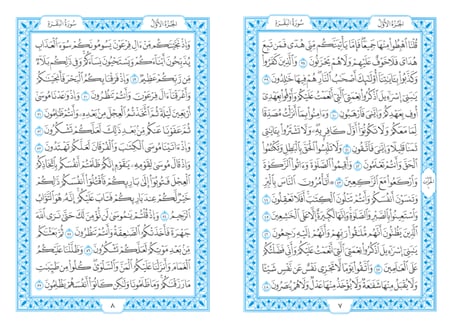 سُورَةُ البَقَرَةِ
الجُزْءُ الأَوَّلُ
قُلْنَا ٱهْبِطُوا۟ مِنْهَا جَمِيعًا فَإِمَّا يَأْتِيَنَّكُم مِّنِّى هُدًى فَمَن تَبِعَ
هُدَاىَ فَلَا خَوْفٌ عَلَيْهِمْ وَلَا هُمْ يَحْزَنُونَ ٣٨ وَٱلَّذِينَ كَفَرُوا۟
وَكَذَّبُوا۟ بِـَٔايَٰتِنَآ أُو۟لَٰٓئِكَ أَصْحَٰبُ ٱلنَّارِ هُمْ فِيهَا خَٰلِدُونَ ٣٩
يَٰبَنِىٓ إِسْرَٰٓءِيلَ ٱذْكُرُوا۟ نِعْمَتِىَ ٱلَّتِىٓ أَنْعَمْتُ عَلَيْكُمْ وَأَوْفُوا۟ بِعَهْدِىٓ
أُوفِ بِعَهْدِكُمْ وَإِيَّٰىَ فَٱرْهَبُونِ ٤٠ وَءَامِنُوا۟ بِمَآ أَنزَلْتُ مُصَدِّقًا
لِّمَا مَعَكُمْ وَلَا تَكُونُوٓا۟ أَوَّلَ كَافِرٍۭ بِهِۦ وَلَا تَشْتَرُوا۟ بِـَٔايَٰتِى
ثَمَنًا قَلِيلًا وَإِيَّٰىَ فَٱتَّقُونِ ٤١ وَلَا تَلْبِسُوا۟ ٱلْحَقَّ بِٱلْبَٰطِلِ وَتَكْتُمُوا۟
ٱلْحَقَّ وَأَنتُمْ تَعْلَمُونَ ٤٢ وَأَقِيمُوا۟ ٱلصَّلَوٰةَ وَءَاتُوا۟ ٱلزَّكَوٰةَ
وَٱرْكَعُوا۟ مَعَ ٱلرَّٰكِعِينَ ٤٣ أَتَأْمُرُونَ ٱلنَّاسَ بِٱلْبِرِّ
وَتَنسَوْنَ أَنفُسَكُمْ وَأَنتُمْ تَتْلُونَ ٱلْكِتَٰبَ أَفَلَا تَعْقِلُونَ ٤٤
وَٱسْتَعِينُوا۟ بِٱلصَّبْرِ وَٱلصَّلَوٰةِ وَإِنَّهَا لَكَبِيرَةٌ إِلَّا عَلَى ٱلْخَٰشِعِينَ ٤٥
ٱلَّذِينَ يَظُنُّونَ أَنَّهُم مُّلَٰقُوا۟ رَبِّهِمْ وَأَنَّهُمْ إِلَيْهِ رَٰجِعُونَ ٤٦
يَٰبَنِىٓ إِسْرَٰٓءِيلَ ٱذْكُرُوا۟ نِعْمَتِىَ ٱلَّتِىٓ أَنْعَمْتُ عَلَيْكُمْ وَأَنِّى فَضَّلْتُكُمْ
عَلَى ٱلْعَٰلَمِينَ ٤٧ وَٱتَّقُوا۟ يَوْمًا لَّا تَجْزِى نَفْسٌ عَن نَّفْسٍ شَيْـًٔا
وَلَا يُقْبَلُ مِنْهَا شَفَٰعَةٌ وَلَا يُؤْخَذُ مِنْهَا عَدْلٌ وَلَا هُمْ يُنصَرُونَ ٤٨
٧
الجُزْءُ الأَوَّلُ
سُورَةُ البَقَرَةِ
وَإِذْ نَجَّيْنَٰكُم مِّنْ ءَالِ فِرْعَوْنَ يَسُومُونَكُمْ سُوٓءَ ٱلْعَذَابِ
يُذَبِّحُونَ أَبْنَآءَكُمْ وَيَسْتَحْيُونَ نِسَآءَكُمْ وَفِى ذَٰلِكُم بَلَآءٌ
مِّن رَّبِّكُمْ عَظِيمٌ ٤٩ وَإِذْ فَرَقْنَا بِكُمُ ٱلْبَحْرَ فَأَنجَيْنَٰكُمْ
وَأَغْرَقْنَآ ءَالَ فِرْعَوْنَ وَأَنتُمْ تَنظُرُونَ ٥٠ وَإِذْ وَٰعَدْنَا مُوسَىٰٓ
أَرْبَعِينَ لَيْلَةً ثُمَّ ٱتَّخَذْتُمُ ٱلْعِجْلَ مِنۢ بَعْدِهِۦ وَأَنتُمْ ظَٰلِمُونَ ٥١
ثُمَّ عَفَوْنَا عَنكُم مِّنۢ بَعْدِ ذَٰلِكَ لَعَلَّكُمْ تَشْكُرُونَ ٥٢
وَإِذْ ءَاتَيْنَا مُوسَى ٱلْكِتَٰبَ وَٱلْفُرْقَانَ لَعَلَّكُمْ تَهْتَدُونَ ٥٣
وَإِذْ قَالَ مُوسَىٰ لِقَوْمِهِۦ يَٰقَوْمِ إِنَّكُمْ ظَلَمْتُمْ أَنفُسَكُم بِٱتِّخَاذِكُمُ
ٱلْعِجْلَ فَتُوبُوٓا۟ إِلَىٰ بَارِئِكُمْ فَٱقْتُلُوٓا۟ أَنفُسَكُمْ ذَٰلِكُمْ
خَيْرٌ لَّكُمْ عِندَ بَارِئِكُمْ فَتَابَ عَلَيْكُمْ إِنَّهُۥ هُوَ ٱلتَّوَّابُ
ٱلرَّحِيمُ ٥٤ وَإِذْ قُلْتُمْ يَٰمُوسَىٰ لَن نُّؤْمِنَ لَكَ حَتَّىٰ نَرَى ٱللَّهَ
جَهْرَةً فَأَخَذَتْكُمُ ٱلصَّٰعِقَةُ وَأَنتُمْ تَنظُرُونَ ٥٥ ثُمَّ بَعَثْنَٰكُم
مِّنۢ بَعْدِ مَوْتِكُمْ لَعَلَّكُمْ تَشْكُرُونَ ٥٦ وَظَلَّلْنَا عَلَيْكُمُ
ٱلْغَمَامَ وَأَنزَلْنَا عَلَيْكُمُ ٱلْمَنَّ وَٱلسَّلْوَىٰ كُلُوا۟ مِن طَيِّبَٰتِ
مَا رَزَقْنَٰكُمْ وَمَا ظَلَمُونَا وَلَٰكِن كَانُوٓا۟ أَنفُسَهُمْ يَظْلِمُونَ ٥٧
٨